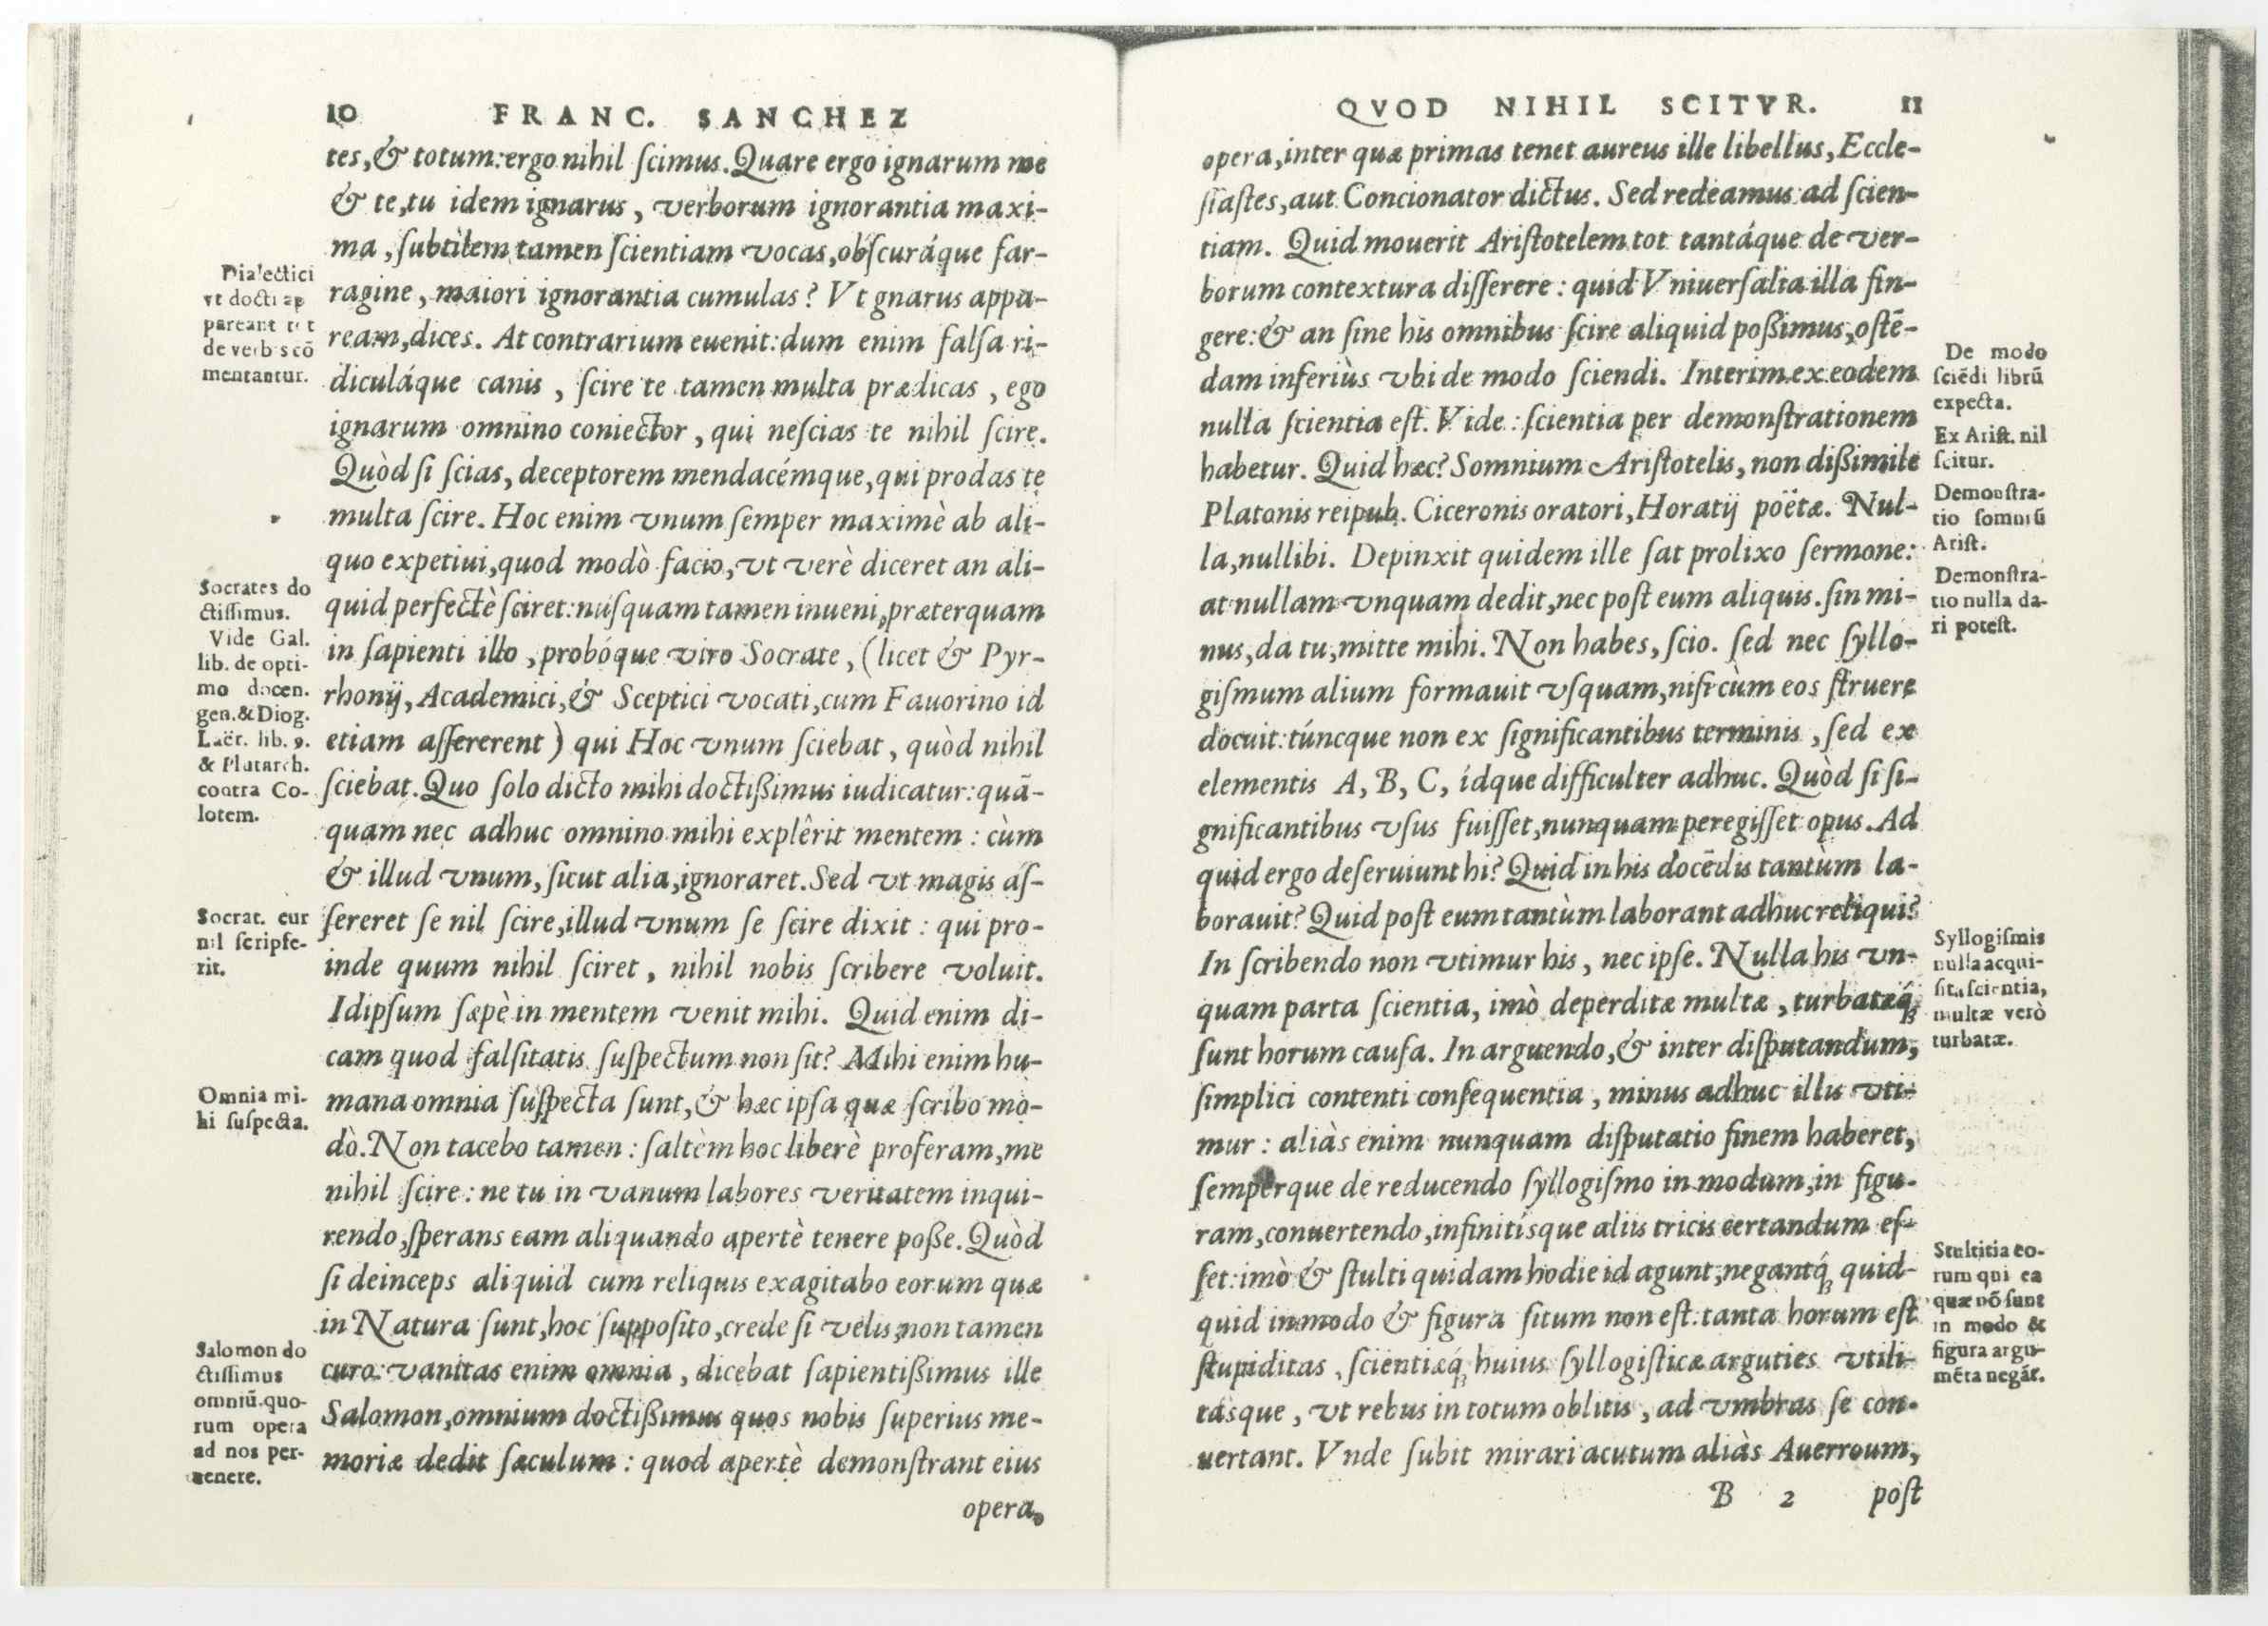 10 FRANC. SANCHEZ
tes,& totum:ergo nihil ſcimus.Quare ergo ignarum me
& te,tu idem ignarus, verborum ignorantia maxi-
ma, ſubtilem tamen ſcientiam vocas,obſcuráque far-
ragine, maiori ignorantia cumulas? Vt gnarus appa-
ream,dices. At contrarium euenit:dum enim falſa ri-
diculáque canis, ſcire te tamen multa prædicas, ego
ignarum omnino coniector, qui neſcias te nihil ſcire.
Quòd ſi ſcias, deceptorem mendacémque,qui prodas te
multa ſcire. Hoc enim vnum ſemper maximè ab ali-
quo expetiui,quod modò facio, vt verè diceret an ali-
quid perfectè ſciret:nuſquam tamen inueni,præterquam
in ſapienti illo, probóque viro Socrate, (licet & Pyr-
rhonij, Academici,& Sceptici vocati,cum Fauorino id
etiam aſſererent) qui Hoc vnum ſciebat, quòd nihil
ſciebat.Quo ſolo dicto mihi doctißimus iudicatur:quā-
quam nec adhuc omnino mihi explêrit mentem: cùm
& illud vnum, ſicut alia,ignoraret.Sed vt magis aſ-
ſereret ſe nil ſcire,illud vnum ſe ſcire dixit: qui pro-
inde quum nihil ſciret, nihil nobis ſcribere voluit.
Idipſum ſæpè in mentem venit mihi. Quid enim di-
cam quod falſitatis ſuſpectum non ſit? Mihi enim hu-
mana omnia ſuſpecta ſunt,& hæc ipſa quæ ſcribo mo-
dò.Non tacebo tamen: ſaltèm hoc liberè proferam,me
nihil ſcire: ne tu in vanum labores veritatem inqui-
rendo,ſperans eam aliquando apertè tenere poße.Quòd
ſi deinceps aliquid cum reliquis exagitabo eorum quæ
in Natura ſunt,hoc ſuppoſito,crede ſi velis,non tamen
curo: vanitas enim omnia, dicebat ſapientißimus ille
Salomon,omnium doctißimus quos nobis ſuperius me-
moriæ dedit ſæculum: quod apertè demonſtrant eius
opera,
Dialectici
vt docti ap
pareant tot
de verbis cō
mentantur.
Socrates do
ctiſſimus.
Vide Gal.
lib. de opti-
mo docen.
gen.& Diog.
Laër. lib. 9.
& Plutarch.
contra Co-
lotem.
Socrat. cur
nil ſcripſe-
rit.
Omnia mi-
hi ſuſpecta.
Salomon do
ctiſſimus
omniũ.quo-
rum opera
ad nos per-
uenere.
QVOD NIHIL SCITVR. 11
opera,inter quæ primas tenet aureus ille libellus, Eccle-
ſiaſtes,aut Concionator dictus. Sed redeamus ad ſcien-
tiam. Quid mouerit Ariſtotelem tot tantáque de ver-
borum contextura diſſerere: quid Vniuerſalia illa fin-
gere:& an ſine his omnibus ſcire aliquid poßimus,oſtē-
dam inferiùs vbi de modo ſciendi. Interim ex eodem
nulla ſcientia eſt. Vide: ſcientia per demonſtrationem
habetur. Quid hæc? Somnium Ariſtotelis, non dißimile
Platonis reipub. Ciceronis oratori, Horatij poëtæ. Nul-
la,nullibi. Depinxit quidem ille ſat prolixo ſermone:
at nullam vnquam dedit,nec poſt eum aliquis. ſin mi-
nus,da tu,mitte mihi. Non habes, ſcio. ſed nec ſyllo-
giſmum alium formauit vſquam,niſi cùm eos ſtruere
docuit:túncque non ex ſignificantibus terminis, ſed ex
elementis A, B, C, ídque difficulter adhuc. Quòd ſi ſi-
gnificantibus vſus fuiſſet,nunquam peregiſſet opus. Ad
quid ergo deſeruiunt hi? Quid in his docēdis tantùm la-
borauit? Quid poſt eum tantùm laborant adhuc reliqui?
In ſcribendo non vtimur his, nec ipſe. Nulla his vn-
quam parta ſcientia, imò deperditæ multæ, turbatæq́;
ſunt horum cauſa. In arguendo,& inter diſputandum,
ſimplici contenti conſequentia, minus adhuc illis vti-
mur: aliàs enim nunquam diſputatio finem haberet,
ſemperque de reducendo ſyllogiſmo in modum,in figu-
ram,conuertendo,infinitísque aliis tricis certandum eſ-
ſet:imò & ſtulti quidam hodie id agunt,negantq́; quid-
quid in modo & figura ſitum non eſt: tanta horum eſt
ſtupiditas, ſcientiæq́; huius ſyllogiſticæ arguties vtili-
tásque, vt rebus in totum oblitis, ad vmbras ſe con-
uertant. Vnde ſubit mirari acutum aliàs Auerroum,
B 2 poſt
De modo
ſciēdi librũ
expecta.
Ex Ariſt. nil
ſcitur.
Demonſtra-
tio ſomniũ
Ariſt.
Demonſtra-
tio nulla da-
ri poteſt.
Syllogiſmis
nulla acqui-
ſita ſcientia,
multæ verò
turbatæ.
Stultitia eo-
rum qui ea
quæ nō ſunt
in modo &
figura argu-
mēta negāt.